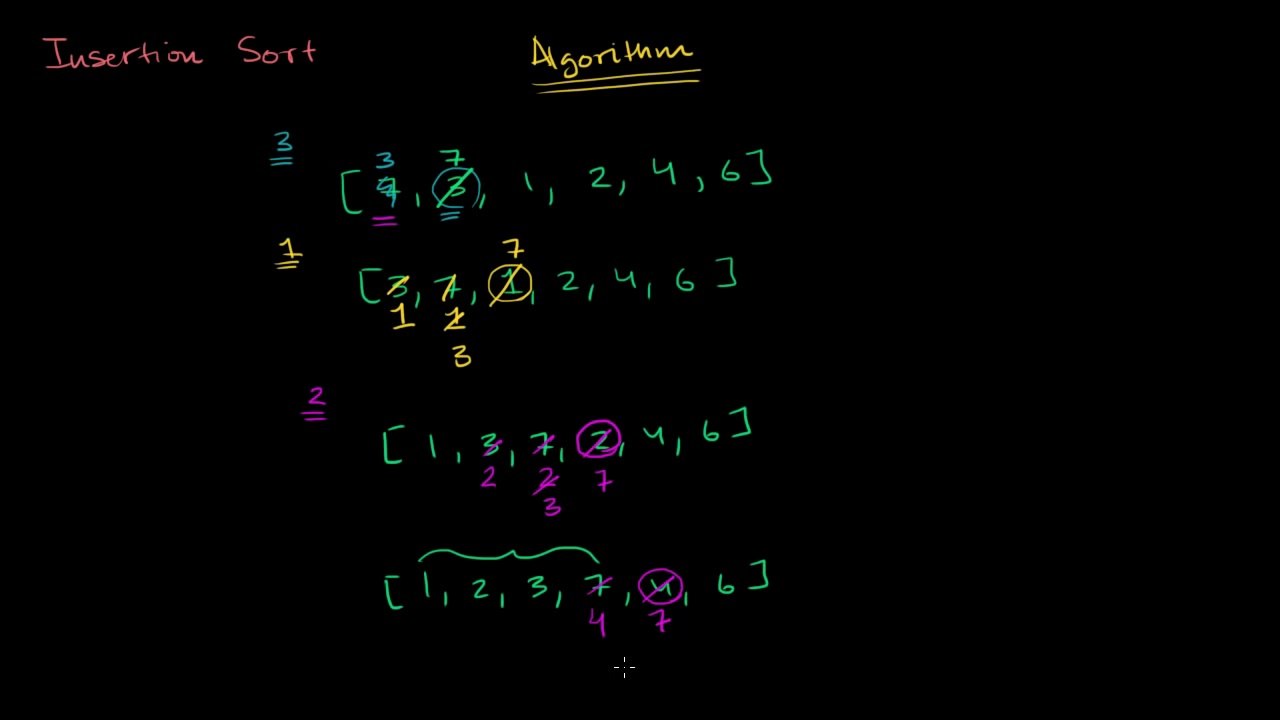 Insertion Sort Algorithm
3
3 7
[7, 3, 1, 2, 4, 6]
1
7
[3, 7, 1, 2, 4, 6]
1 1
3
2
[1, 3, 7, 2, 4, 6]
2 2 7
3
[1, 2, 3, 7, 4, 6]
4 7